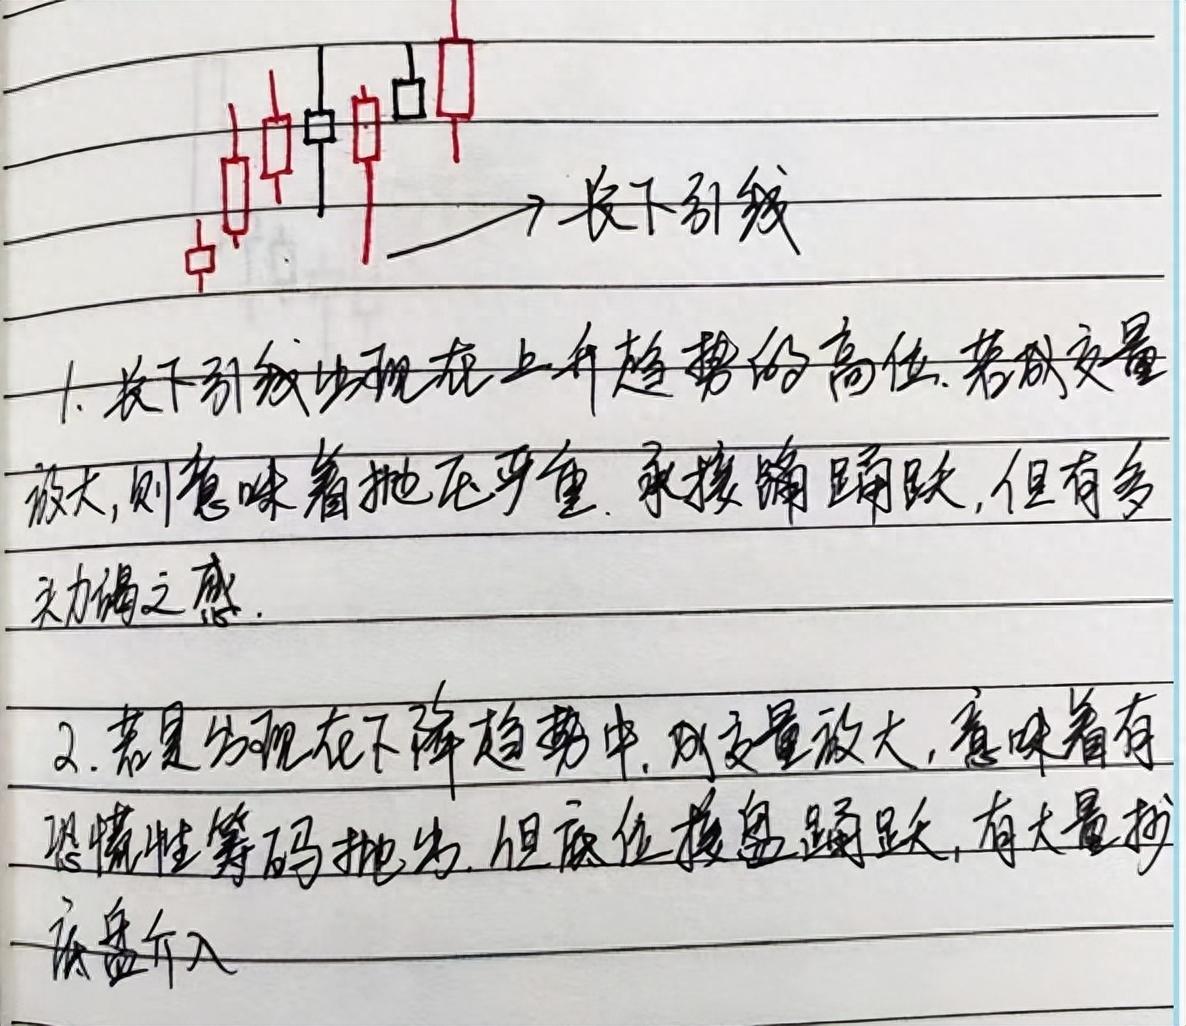 长下引线
1. 长下引线出现在上升趋势的高位.若成交量
放大,则意味着抛压严重.承接踊踊跃,但有多
头力竭之感.
2.若是出现在下降趋势中.成交量放大,意味着有
恐慌性筹码抛出.但底位接盘踊跃,有大量抄
底盘介入